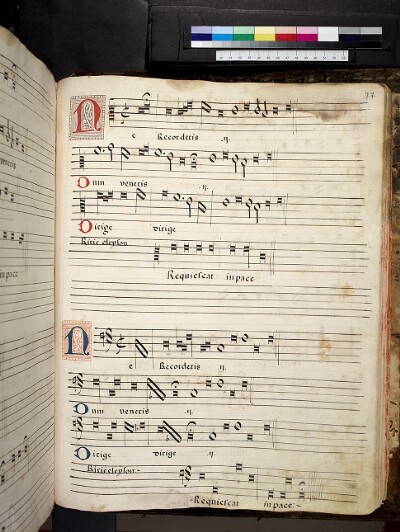 77
N
e Recorderis .ij.
Dum veneris .ij.
Dirige dirige
Kirie eleyson
Requiescat in pace
N
e Recorderis .ij.
Dum veneris .ij.
Dirige dirige .ij.
Kirie eleyson-
-Requiescat in pace:-
in pace